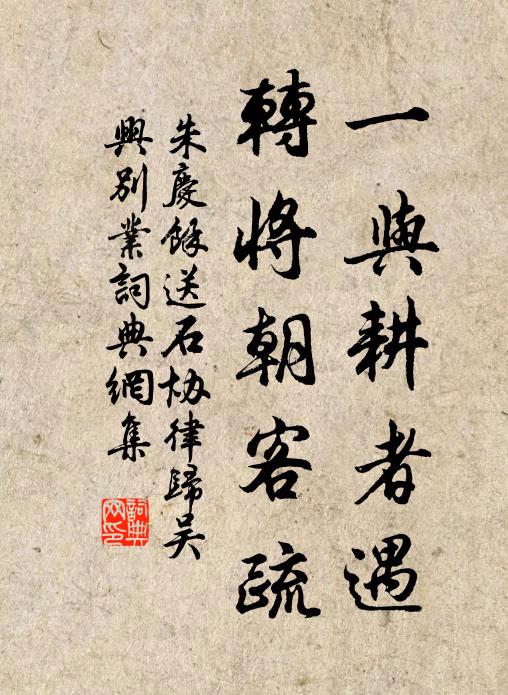 一與耕者遇
轉將朝客疏
朱慶餘送石协律歸吴
興别業詞典網集
詞典网印